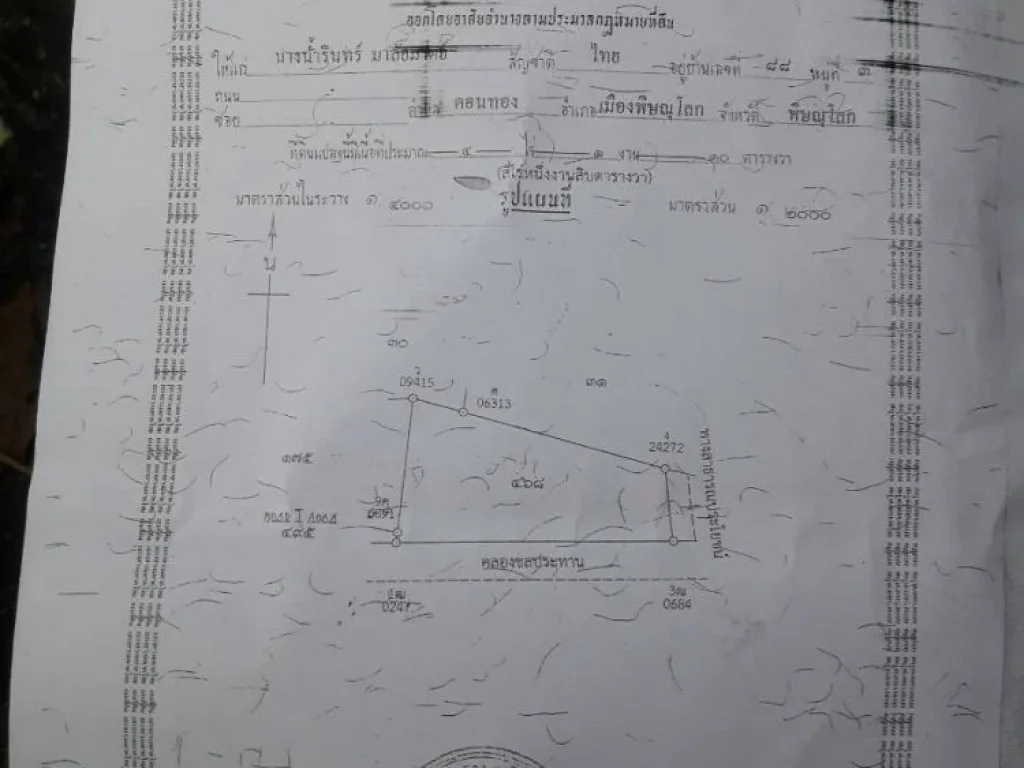 ออกโดยอาศัยอำนาจตามประมวลกฎหมายที่ดิน
ให้แก่ นางน้ำรินทร์ สัญชาติ ไทย อยู่บ้านเลขที่ ๘๘ หมู่ที่ ๓
ถนน
ซอย ตำบล ดอนทอง อำเภอ เมืองพิษณุโลก จังหวัด พิษณุโลก
ที่ดินแปลงนี้มีเนื้อที่ประมาณ ๔ ไร่ ๑ งาน ๑๐ ตารางวา
(สี่ไร่หนึ่งงานสิบตารางวา)
มาตราส่วนในระวาง ๑ ๔๐๐๐ รูปแผนที่ มาตราส่วน ๑ ๒๐๐๐
น
๓๐
๓๑
09415
06313
24272
๑๗๕
๔๖๘
ทางสาธารณประโยชน์
๔๙๕
คลองชลประทาน
0247
0684